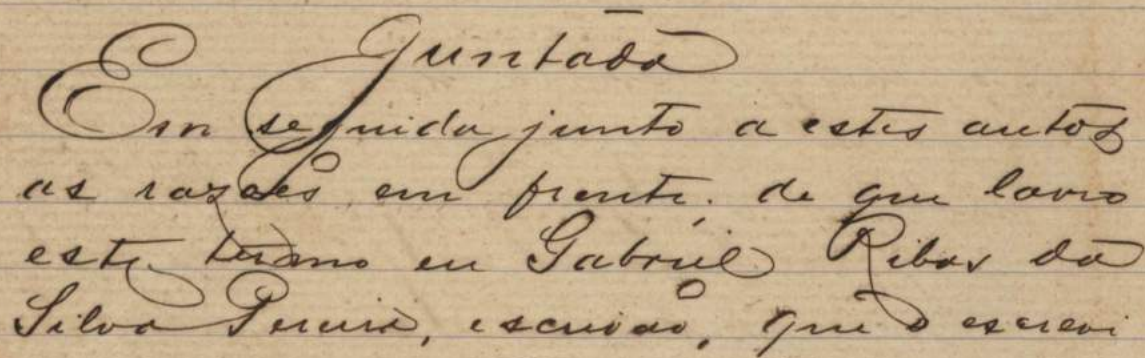 Juntada
Em seguida junto a estes autos
as razões em frente; de que lavro
este termo eu Gabriel Ribas da
Silva Pereira, escrivão, que o escrevi